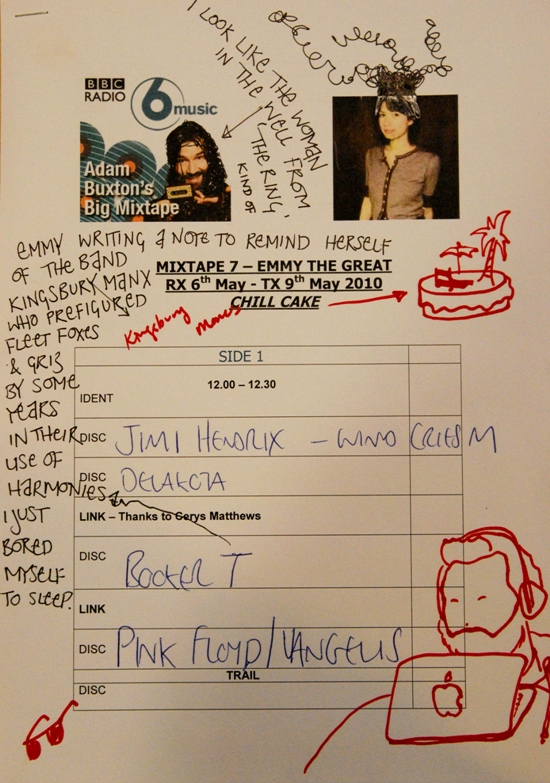 I LOOK LIKE THE WOMAN
IN THE WELL FROM
'THE RING'
KIND OF
BBC
RADIO
6 music
Adam
Buxton's
Big Mixtape
EMMY WRITING A NOTE TO REMIND HERSELF
OF THE BAND
KINGSBURY MANX
WHO PREFIGURED
FLEET FOXES
& GRIZ
BY SOME
YEARS
IN THEIR
USE OF
HARMONIES
I JUST
BORED
MYSELF
TO SLEEP.
MIXTAPE 7 – EMMY THE GREAT
RX 6th May - TX 9th May 2010
CHILL CAKE
Kingsbury Manx
SIDE 1
12.00 – 12.30
IDENT
DISC JIMI HENDRIX – WIND CRIES M
DISC DELAKOTA
LINK – Thanks to Cerys Matthews
DISC BOOKER T
LINK
DISC PINK FLOYD/VANGELIS
TRAIL
DISC